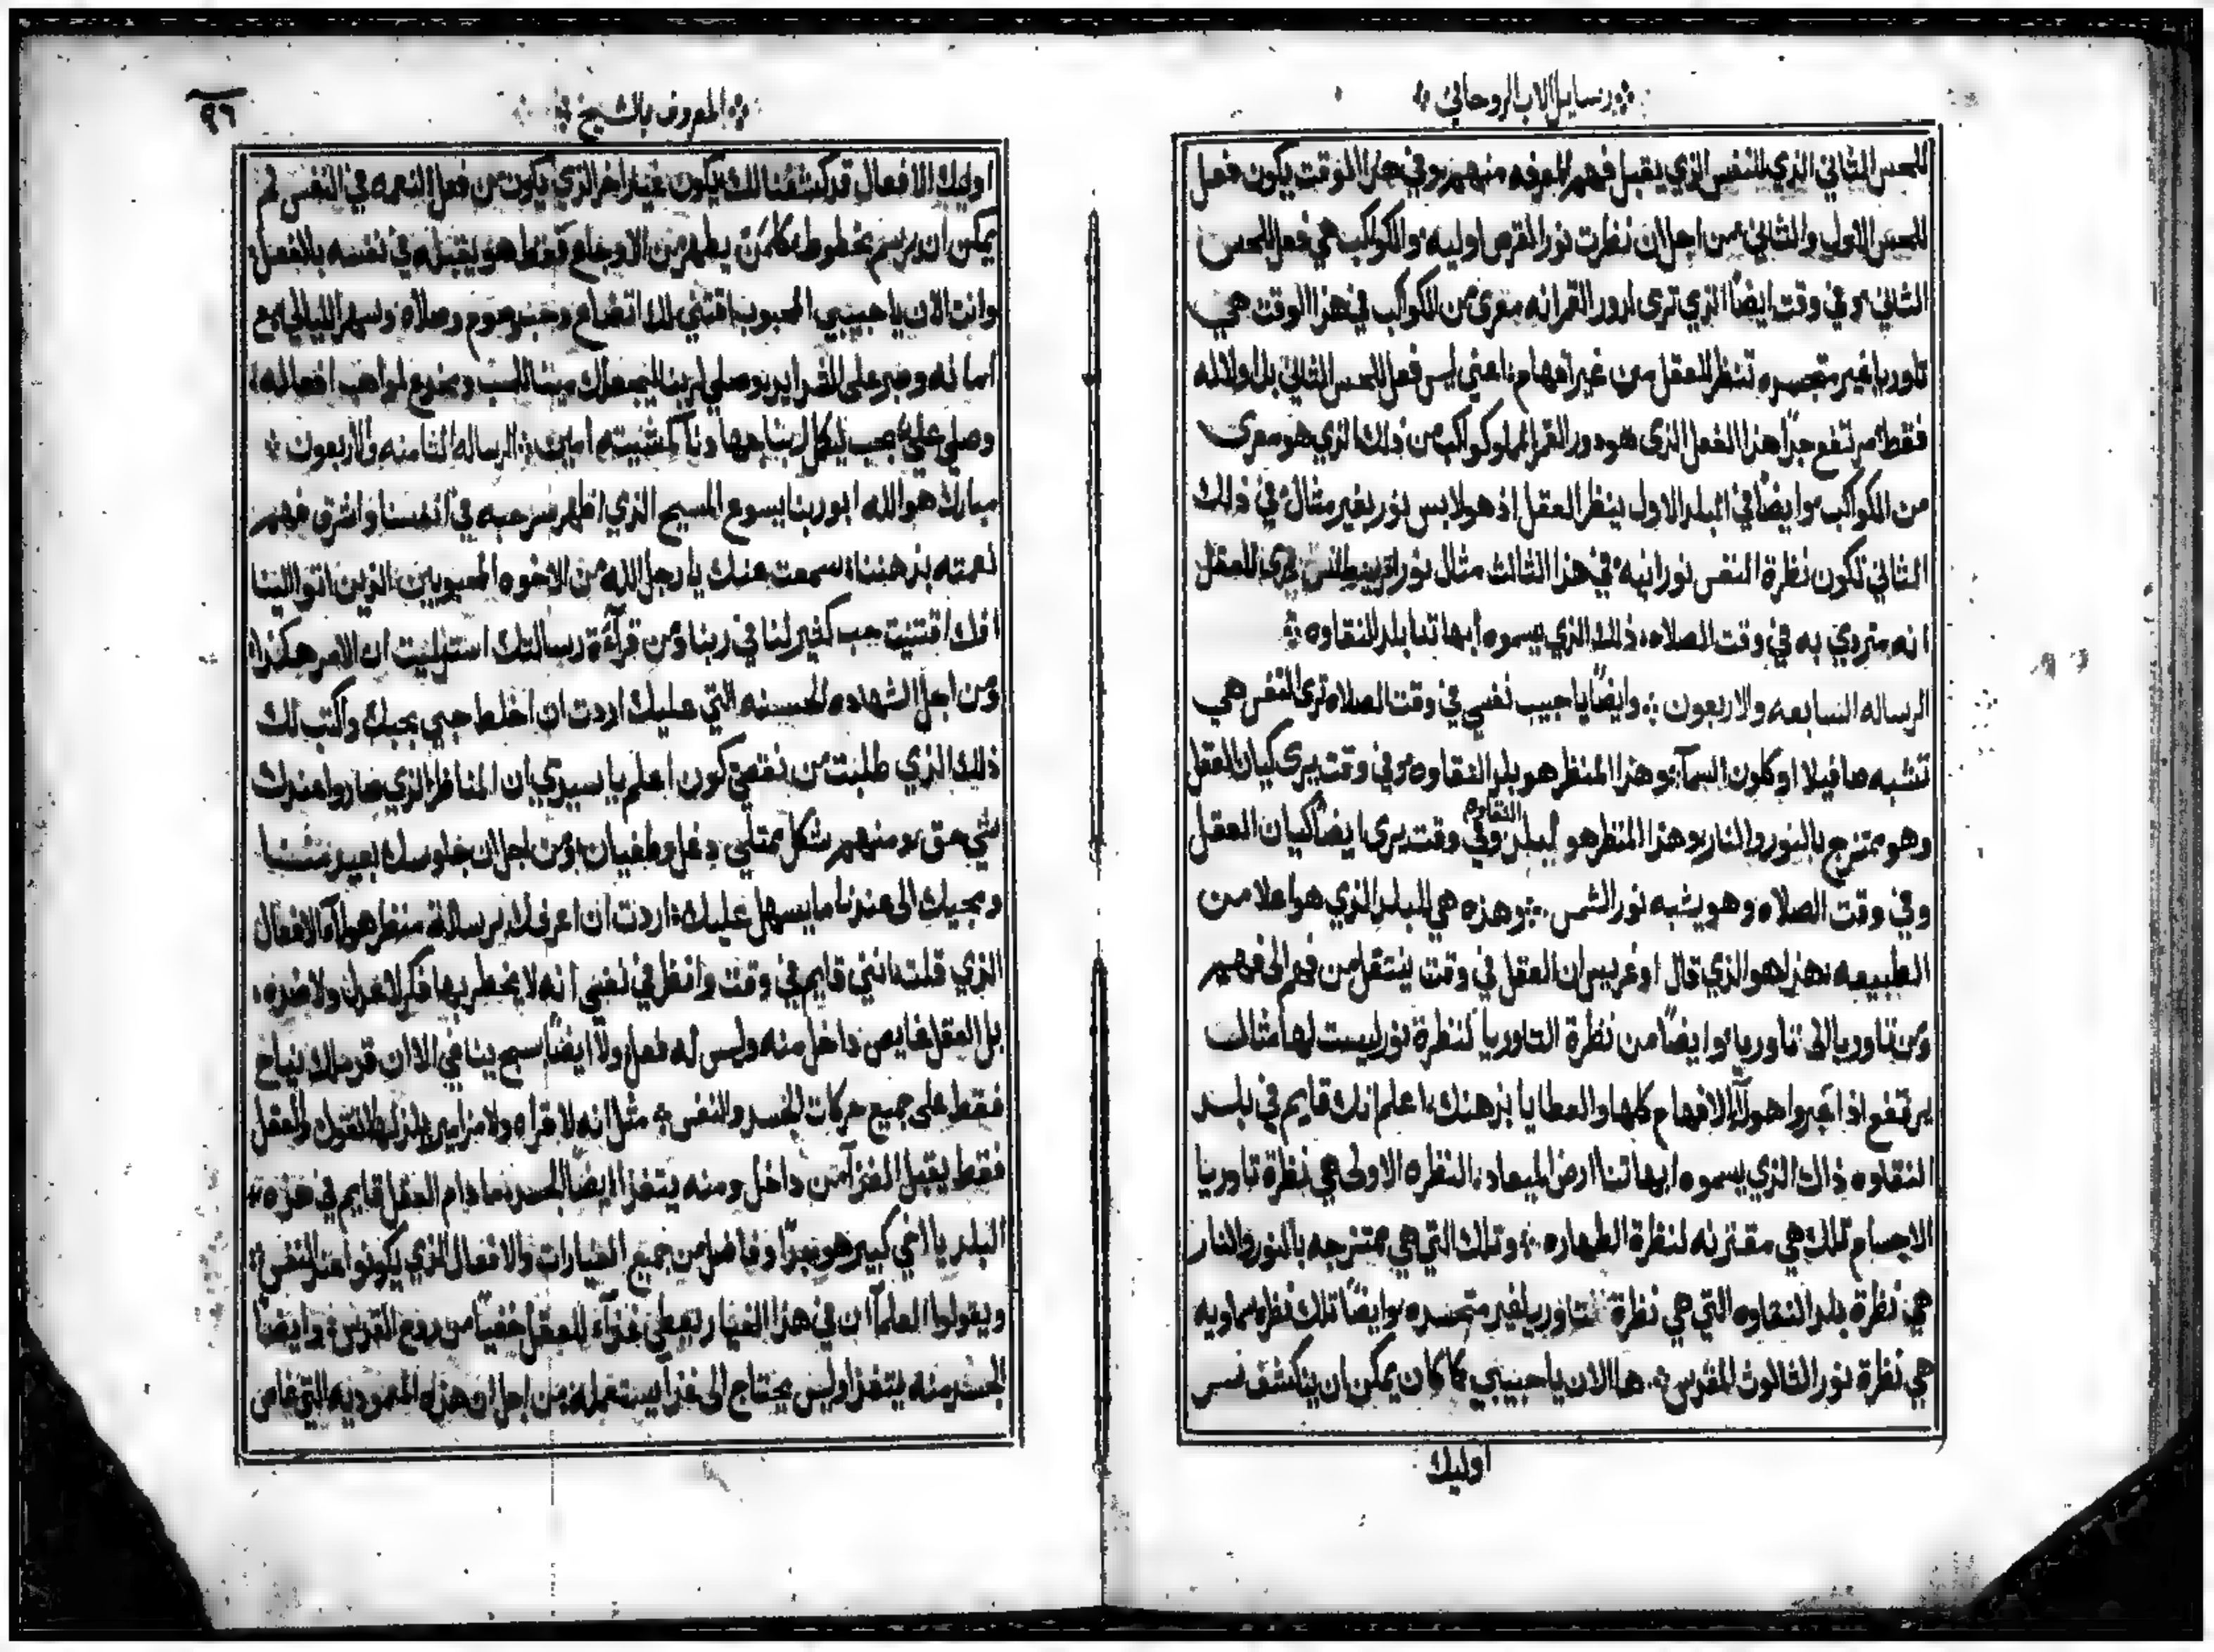 رسايل الاب الروحاني
للحس الثاني الذي للنفس الذي يقبل فهم المعرفه منهم وفي هذا الوقت يكون فعل
للحس الاول والثاني من اجل ان نظرت نور القرص اوليه والكواكب هي فعل الحس
الثاني وفي وقت ايضاً الذي ترى لدور القمر انه معرى من الكواكب في هذا الوقت هي
تاوريا غير متجسده تنظر للعقل من غير افهام اعني ليس فعل للحس الثاني بل اولائه
فقط مرتفع جداً هذا الفعل الذى هو دور القمر المملو كواكب من ذلك الذي هو معرى
من الكواكب وايضاً في البلد الاول ينظر العقل اذ هو لابس نور بغير مثال في ذلك
الثاني تكون نظرة النفس نورانيه في هذا الثالث مثال نور يرى للعقل
انه متردي به في وقت الصلاه ذلك الذي يسموه ابهاتنا بلد النقاوه
الرساله السابعه والاربعون وايضاً يا حبيب نفسي في وقت الصلاه ترى النفس هي
تشبه صافيلا او كلون السمآ وهذا المنظر هو بلد النقاوه وفي وقت يرى كيان العقل
وهو ممتزج بالنور والنار وهذا المنظر هو لبلد النقاوه وفي وقت يرى ايضاً كيان العقل
وفي وقت الصلاه وهو يشبه نور الشمس وهذه هي البلد الذي هو اعلا من
الطبيعه هذا هو الذي قال اوغريس ان العقل في وقت ينتقل من فهم الى فهم
ومن تاوريا الى تاوريا وايضاً من نظرة التاوريا لنظرة نور ليست لها مثال
يرتفع اذا عبروا هولآ الافهام كلها والعطايا بذهنك اعلم انك قايم في بلد
النقاوه ذاك الذي يسموه ابهاتنا ارض الميعاد النظره الاولى هي نظرة تاوريا
الاجسام تلك هي مقترنه لنظرة الطهاره وتلك التي هي ممتزجه بالنور والنار
هي نظرة بلد النقاوه التي هي نظرة تاوريا غير متجسده وايضاً تلك نظره سماويه
هي نظرة نور الثالوث المقدس ها الان يا حبيبي كما كان يمكن ان ينكشف سر
اوليك
المعروف بالشيخ
٩٦
اوليك الافعال قد كشفنا لك يكون غيار اخر الذي يكون من فعل النعمه في النفس لم
يمكن ان يرسم بخطوط كما من يطهر من الاوجاع فقط هو يقبله في نفسه بالفعل
وانت الان يا حبيبي المحبوب اقتني لك اتضاع وحب صوم وصلاه وسهر الليالي مع
امانه وصبر على الشدايد وصلي لربنا ليجعلك ميناً للسب ومخدع لمواهب افعاله
وصلي علي بحب ليكمل ربنا جهادنا كمشيته امين الرساله الثامنه والاربعون
مبارك هو الله ابو ربنا يسوع المسيح الذي اظهر سر حبه في انفسنا واشرق فهم
نعمته بذهننا سمعت عنك يا رجل الله من الاخوه المحبوبين الذين اتوا الينا
انك اقتنيت حب كثير لنا في ربنا ومن قرآة رسالتك استبليت ان الامر هكذا
ومن اجل الشهاده الحسنه التي عليك اردت ان اخلط حبي بحبك واكتب لك
ذلك الذي طلبت من نقصي كون اعلم يا سيدي ان المناظر الذي صاروا عندك
شي حق ومنهم شكل ممتلي دغل وطغيان ومن اجل ان جلوسك بعيد منا
ومجيك الى عندنا ما يسهل عليك اردت ان اعرفك برسالة منظر هولآ الافعال
الذي قلت انني قايم في وقت وانظر في نفسي انه لا يخطر بها فكر لاعدل ولا ضده
بل العقل غايص داخل منه وليس له فعل ولا ايضاً سبح بنا في الا ان قد ملك نياح
فقط على جميع حركات الجسد والنفس مثل انه لا قراه ولا مزامير يلذ لها القول والعقل
فقط يقبل الغذآ من داخل ومنه يتغذا ايضاً الجسد ما دام العقل قايم في هذه
البلد يا اخي كبير هو جداً وفاضل من جميع الغيارات والافعال الذي يكونوا عند النفس
ويقولوا العلمآ ان في هذا الغيار يعطى غذآ للعقل خفياً من روح القدس وايضاً
الجسد منه يتغذا وليس يحتاج الى غذا يستعمله من اجل ان هذه المعموديه التي غاص